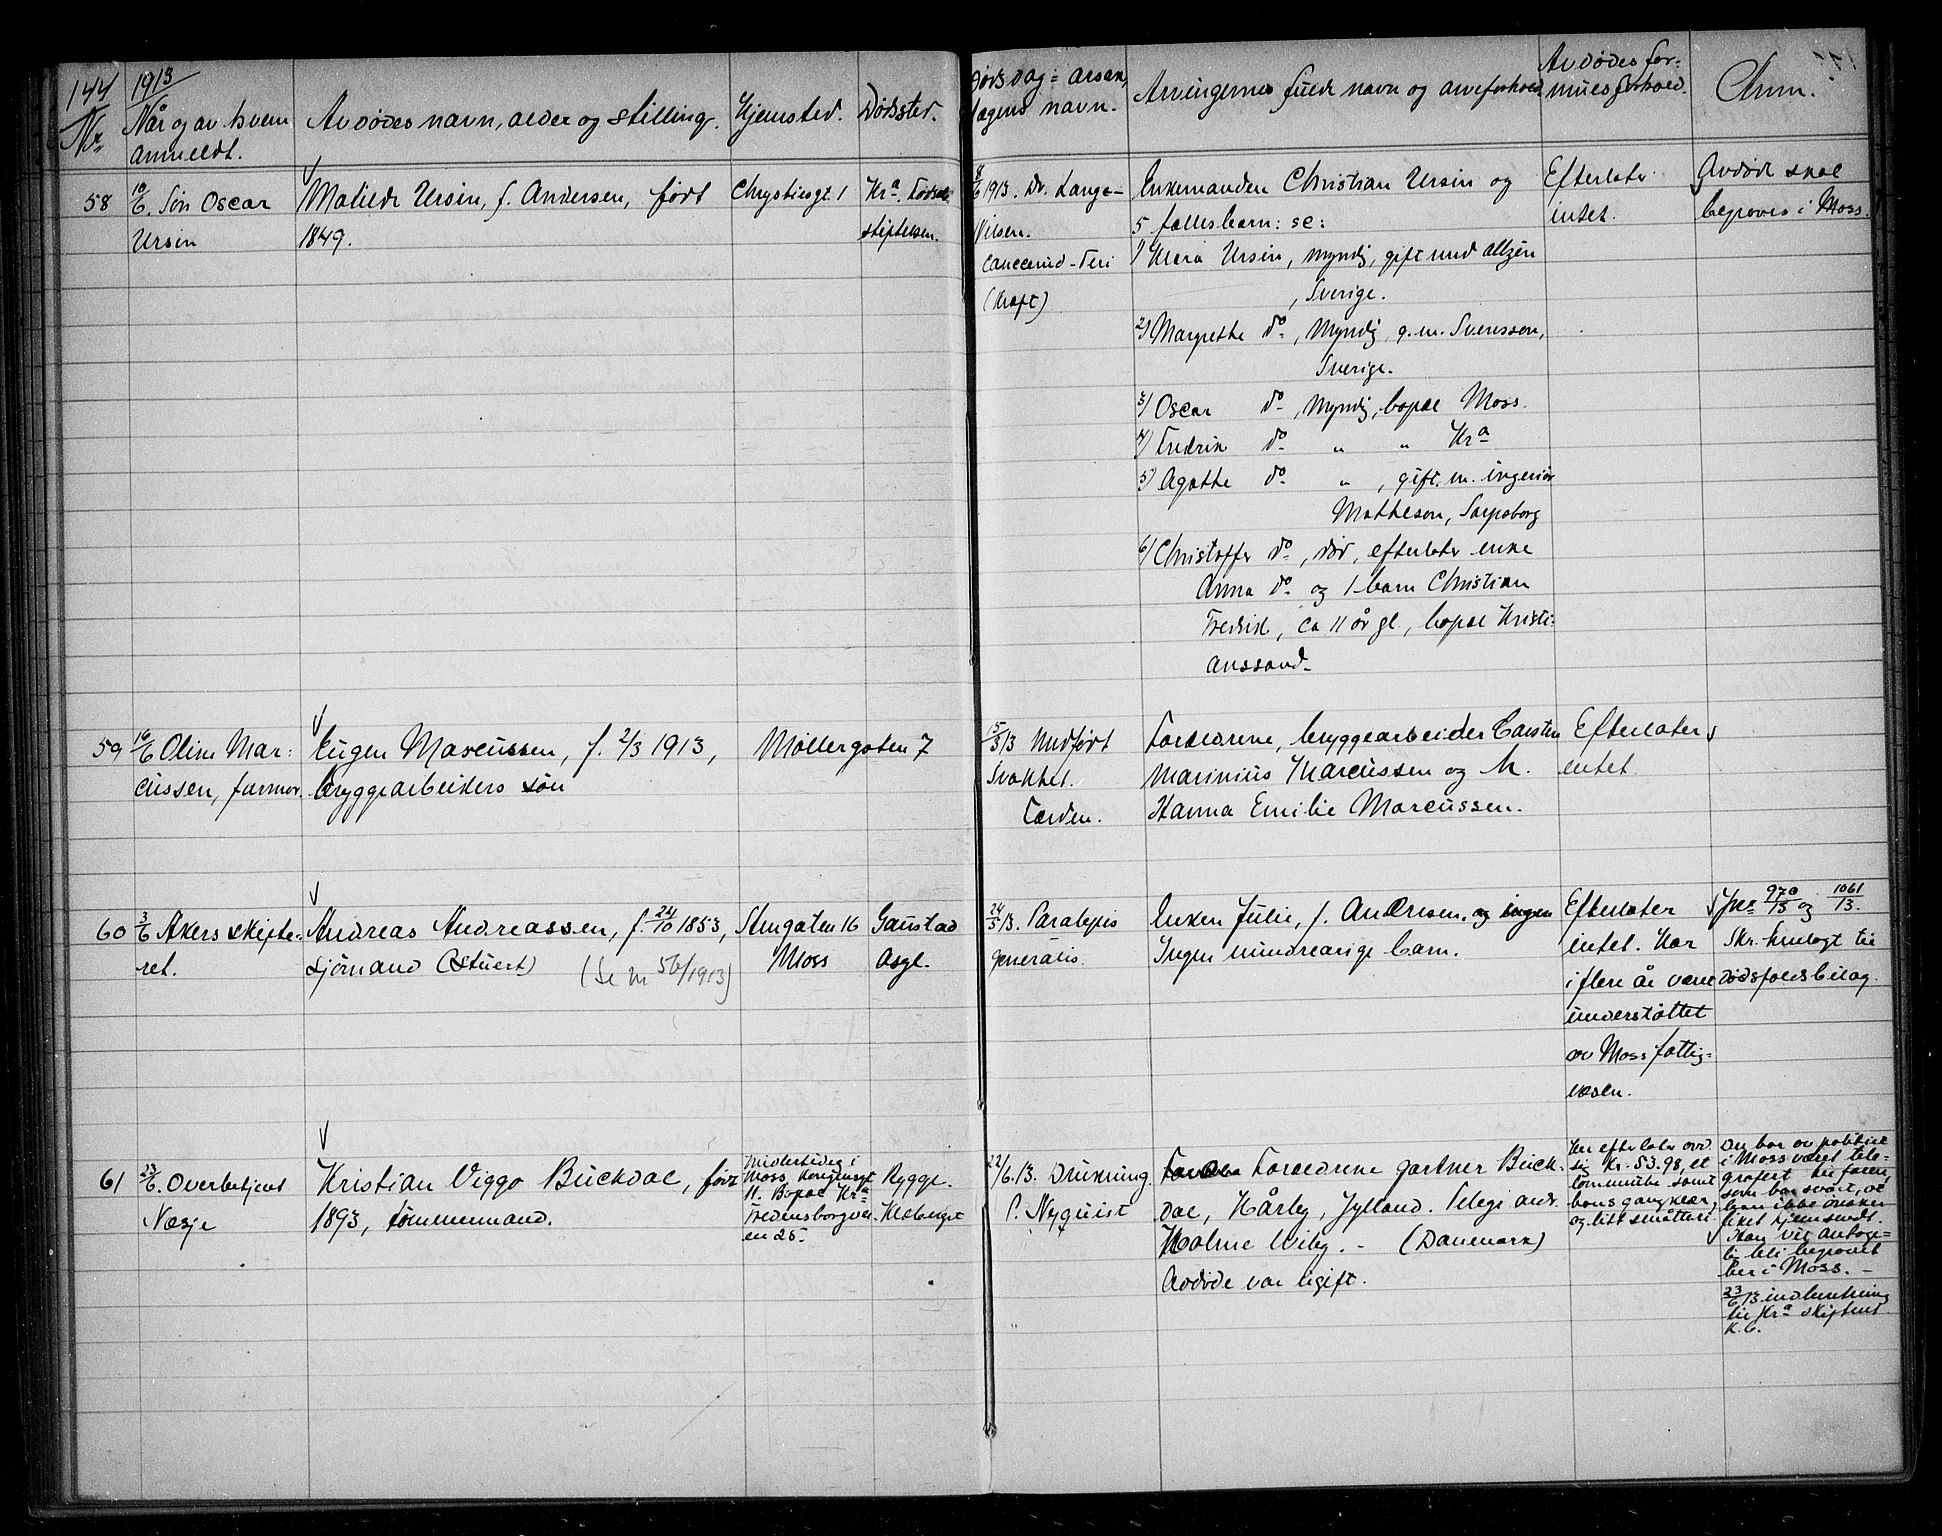 144
1913
Nr
Når og av hvem anmeldt.
Avdødes navn, alder og stilling.
Hjemsted.
Dødssted.
Dødsdag = årsak,
lægens navn.
Arvingernes fulde navn og arveforhold
Avdødes for-
muesforhold.
Anm.
58
10/6. Søn Oscar
Ursin
Matilde Ursin, f. Andersen, født
1849.
Chrystiesgt. 1
Kr.a Fødsels
stiftelsen.
8/6 1913. Dr. Lange-
Nilsen.
(Kraft)
Enkemanden Christian Ursin og
5 fællesbarn: se:
1) Ursin, myndig, gift med
, Sverige.
2) Margrethe do., myndig, g.m. Svensson,
Sverige.
3) Oscar do., myndig, bopæl Moss.
4) Fredrik do. " " Kr.a
5) Agathe do. " , gift. m. ingeniør
Matheson, Sarpsborg
6) Christoffer do., død, efterlater enke
Anna do. og 1 barn Christian
Fredrik, ca 11 år gl., bopæl Kristi-
anssand.
Efterlater
intet.
Avdøde skal
begraves i Moss.
59
16/6 Oline Mar-
cussen, farmor.
Eugen Marcussen, f. 2/3 1913,
bryggearbeiders søn
Møllergaten 7
15/3 13 Medfødt
svakhet.
Forældrene, bryggearbeider Carsten
Marinius Marcussen og h.
Hanna Emilie Marcussen.
Efterlater
intet.
60
3/6 Akers skifte-
ret.
Andreas Andreassen, f. 24/10 1853,
sjømand (stuert) (Se nr 56/1913)
Stengaten 16
Moss
Gaustad
Asyl.
24/5 13. Paralysis
generalis.
Enken Julie, f. Andresen. og ingen
Ingen mindreårige barn.
Efterlater
intet. Har
i flere år været
understøttet
av Moss fattig-
væsen.
Jnr 970/13 og 1061/13.
Skr. henlagt til
dødsfaldsbilag.
61
23/6. Overbetjent
Næsje
Kristian Viggo Buckdal, født
1893, tømmermand.
Midlertidig i
Moss, Kongensgt
11. Bopæl Kr.a
Fredensborgvei-
en 25
Rygge.
22/6.13. Drukning.
P. Nyquist
Forældrene gartner Buck-
dal, Hårby, Jylland. Telegr. adr.
Holme Viby. - (Danmark)
Avdøde var ugift.
Her efterlater avd
sig Kr. 53.98, et
lommeuhr samt
hans gangklær,
og litt småtteri
Der har av politiet
i Moss været tele-
grafert til faren,
som har svart, at
han ikke ønsker
liket hjemsendt.
Han vil antage-
lig bli begravet
her i Moss. -
23/6 13 indberetning
til Kr.a skifteret
K.C.